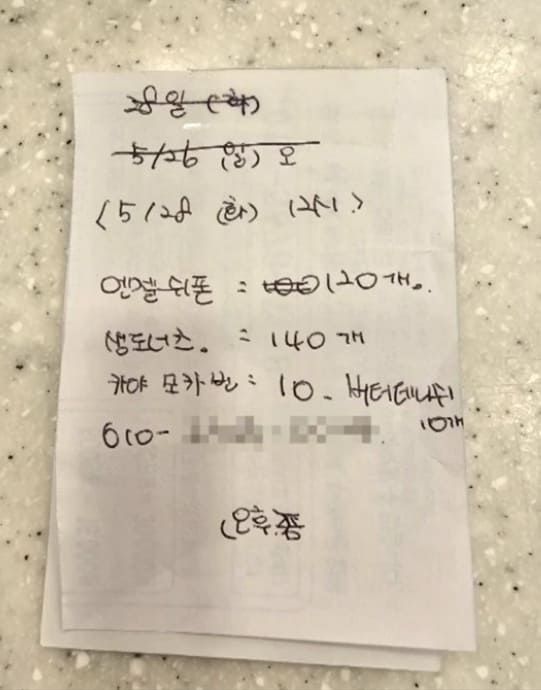 28일 (화)
5/26 (일) 오
<5/28 (화) 12시>
엔젤쉬폰 = 100 120개.
생도너츠. = 140개
카야 모카번 = 10. 버터데니쉬
10개
010-
오후쯤